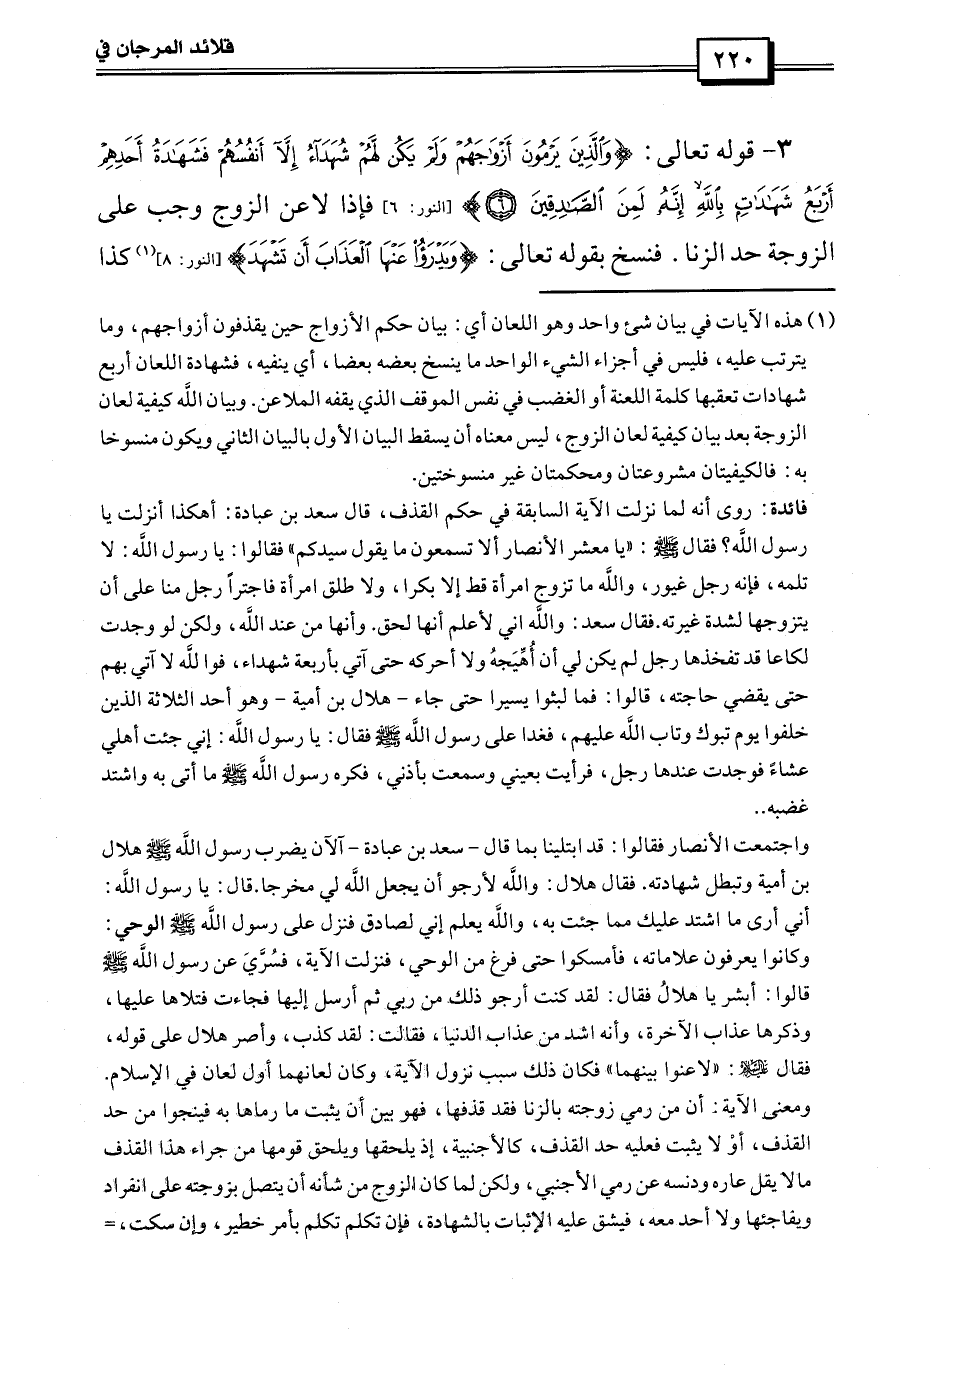 قلائد المرجان في
٢٢٠
٣- قوله تعالى: ﴿وَٱلَّذِينَ يَرْمُونَ أَزْوَٰجَهُمْ وَلَمْ يَكُن لَّهُمْ شُهَدَآءُ إِلَّآ أَنفُسُهُمْ فَشَهَٰدَةُ أَحَدِهِمْ
أَرْبَعُ شَهَٰدَٰتٍۭ بِٱللَّهِ ۙ إِنَّهُۥ لَمِنَ ٱلصَّٰدِقِينَ ۝٦﴾ [النور: ٦] فإذا لاعن الزوج وجب على
الزوجة حد الزنا. فنسخ بقوله تعالى: ﴿وَيَدْرَؤُا۟ عَنْهَا ٱلْعَذَابَ أَن تَشْهَدَ﴾ [النور: ٨](١) كذا
(١) هذه الآيات في بيان شئ واحد وهو اللعان أي: بيان حكم الأزواج حين يقذفون أزواجهم، وما
يترتب عليه، فليس في أجزاء الشيء الواحد ما ينسخ بعضه بعضا، أي ينفيه، فشهادة اللعان أربع
شهادات تعقبها كلمة اللعنة أو الغضب في نفس الموقف الذي يقفه الملاعن. وبيان اللَّه كيفية لعان
الزوجة بعد بيان كيفية لعان الزوج، ليس معناه أن يسقط البيان الأول بالبيان الثاني ويكون منسوخا
به: فالكيفيتان مشروعتان ومحكمتان غير منسوختين.
فائدة: روى أنه لما نزلت الآية السابقة في حكم القذف، قال سعد بن عبادة: أهكذا أنزلت يا
رسول اللَّه؟ فقال ﷺ: «يا معشر الأنصار ألا تسمعون ما يقول سيدكم» فقالوا: يا رسول اللَّه: لا
تلمه، فإنه رجل غيور، واللَّه ما تزوج امرأة قط إلا بكرا، ولا طلق امرأة فاجترأ رجل منا على أن
يتزوجها لشدة غيرته.فقال سعد: واللَّه اني لأعلم أنها لحق. وأنها من عند اللَّه، ولكن لو وجدت
لكاعا قد تفخذها رجل لم يكن لي أن أُهَيِّجهُ ولا أحركه حتى آتي بأربعة شهداء، فوا للَّه لا آتي بهم
حتى يقضي حاجته، قالوا: فما لبثوا يسيرا حتى جاء - هلال بن أمية - وهو أحد الثلاثة الذين
خلفوا يوم تبوك وتاب اللَّه عليهم، فغدا على رسول اللَّه ﷺ فقال: يا رسول اللَّه: إني جئت أهلي
عشاءً فوجدت عندها رجل، فرأيت بعيني وسمعت بأذني، فكره رسول اللَّه ﷺ ما أتى به واشتد
غضبه..
واجتمعت الأنصار فقالوا: قد ابتلينا بما قال - سعد بن عبادة - آلآن يضرب رسول اللَّه ﷺ هلال
بن أمية وتبطل شهادته. فقال هلال: واللَّه لأرجو أن يجعل اللَّه لي مخرجا.قال: يا رسول اللَّه:
أني أرى ما اشتد عليك مما جئت به، واللَّه يعلم إني لصادق فنزل على رسول اللَّه ﷺ الوحي:
وكانوا يعرفون علاماته، فأمسكوا حتى فرغ من الوحي، فنزلت الآية، فسُرَّيَ عن رسول اللَّه ﷺ
قالوا: أبشر يا هلالُ فقال: لقد كنت أرجو ذلك من ربي ثم أرسل إليها فجاءت فتلاها عليها،
وذكرها عذاب الآخرة، وأنه اشد من عذاب الدنيا، فقالت: لقد كذب، وأصر هلال على قوله،
فقال ﷺ: «لاعنوا بينهما» فكان ذلك سبب نزول الآية، وكان لعانهما أول لعان في الإسلام.
ومعنى الآية: أن من رمي زوجته بالزنا فقد قذفها، فهو بين أن يثبت ما رماها به فينجوا من حد
القذف، أوْ لا يثبت فعليه حد القذف، كالأجنبية، إذ يلحقها ويلحق قومها من جراء هذا القذف
مالا يقل عاره ودنسه عن رمي الأجنبي، ولكن لما كان الزوج من شأنه أن يتصل بزوجته على انفراد
ويفاجئها ولا أحد معه، فيشق عليه الإثبات بالشهادة، فإن تكلم تكلم بأمر خطير، وإن سكت، =